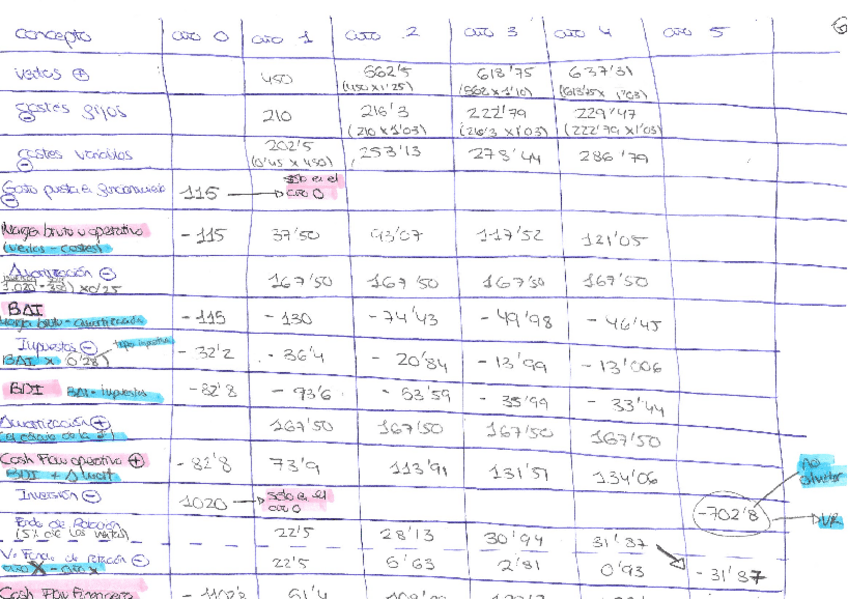 concepto año 0 año 1 año 2 año 3 año 4 año 5
Ventas ⊕ 450 562'5 618'75 637'31
(450 x 1'25) (562 x 1'10) (618'75 x 1'03)
Costes fijos ⊖ 210 216'3 222'79 229'47
(210 x 1'03) (216'3 x 1'03) (222'79 x 1'03)
Costes variables ⊖ 202'5 253'13 278'44 286'79
(0'45 x 450)
Gasto puesta en funcionamiento ⊖ 115 → sólo es el año 0
Margen bruto u operativo - 115 37'50 93'07 117'52 121'05
(ventas - costes)
Amortización ⊖ 167'50 167'50 167'50 167'50
x 0'25
BAI - 115 - 130 - 74'43 - 49'98 - 46'45
Margen bruto - amortización
Impuestos ⊖ tipo impositivo - 32'2 - 36'4 - 20'84 - 13'99 - 13'006
BAI x (0'28)
BDI BAI - impuestos - 82'8 - 93'6 - 53'59 - 35'99 - 33'44
Amortización ⊕ 167'50 167'50 167'50 167'50
Cash Flow operativo ⊕ - 82'8 73'9 113'91 131'51 134'06
BDI + Amort
no olvidar
Inversión ⊖ 1020 → sólo es el año 0 -702'8
DVR
Fondo de Rotación 22'5 28'13 30'94 31'87
(5% de las ventas)
V. Fondo de Rotación ⊖ 22'5 5'63 2'81 0'93 - 31'87
Cash Flow financiero - 1102'8 51'4